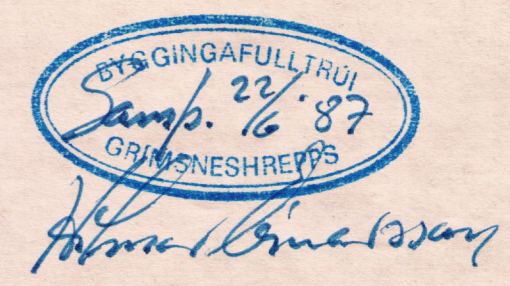 BYGGINGAFULLTRÚI
Samþ. 22/6 '87
GRÍMSNESHREPPS
Hilmar Einarsson